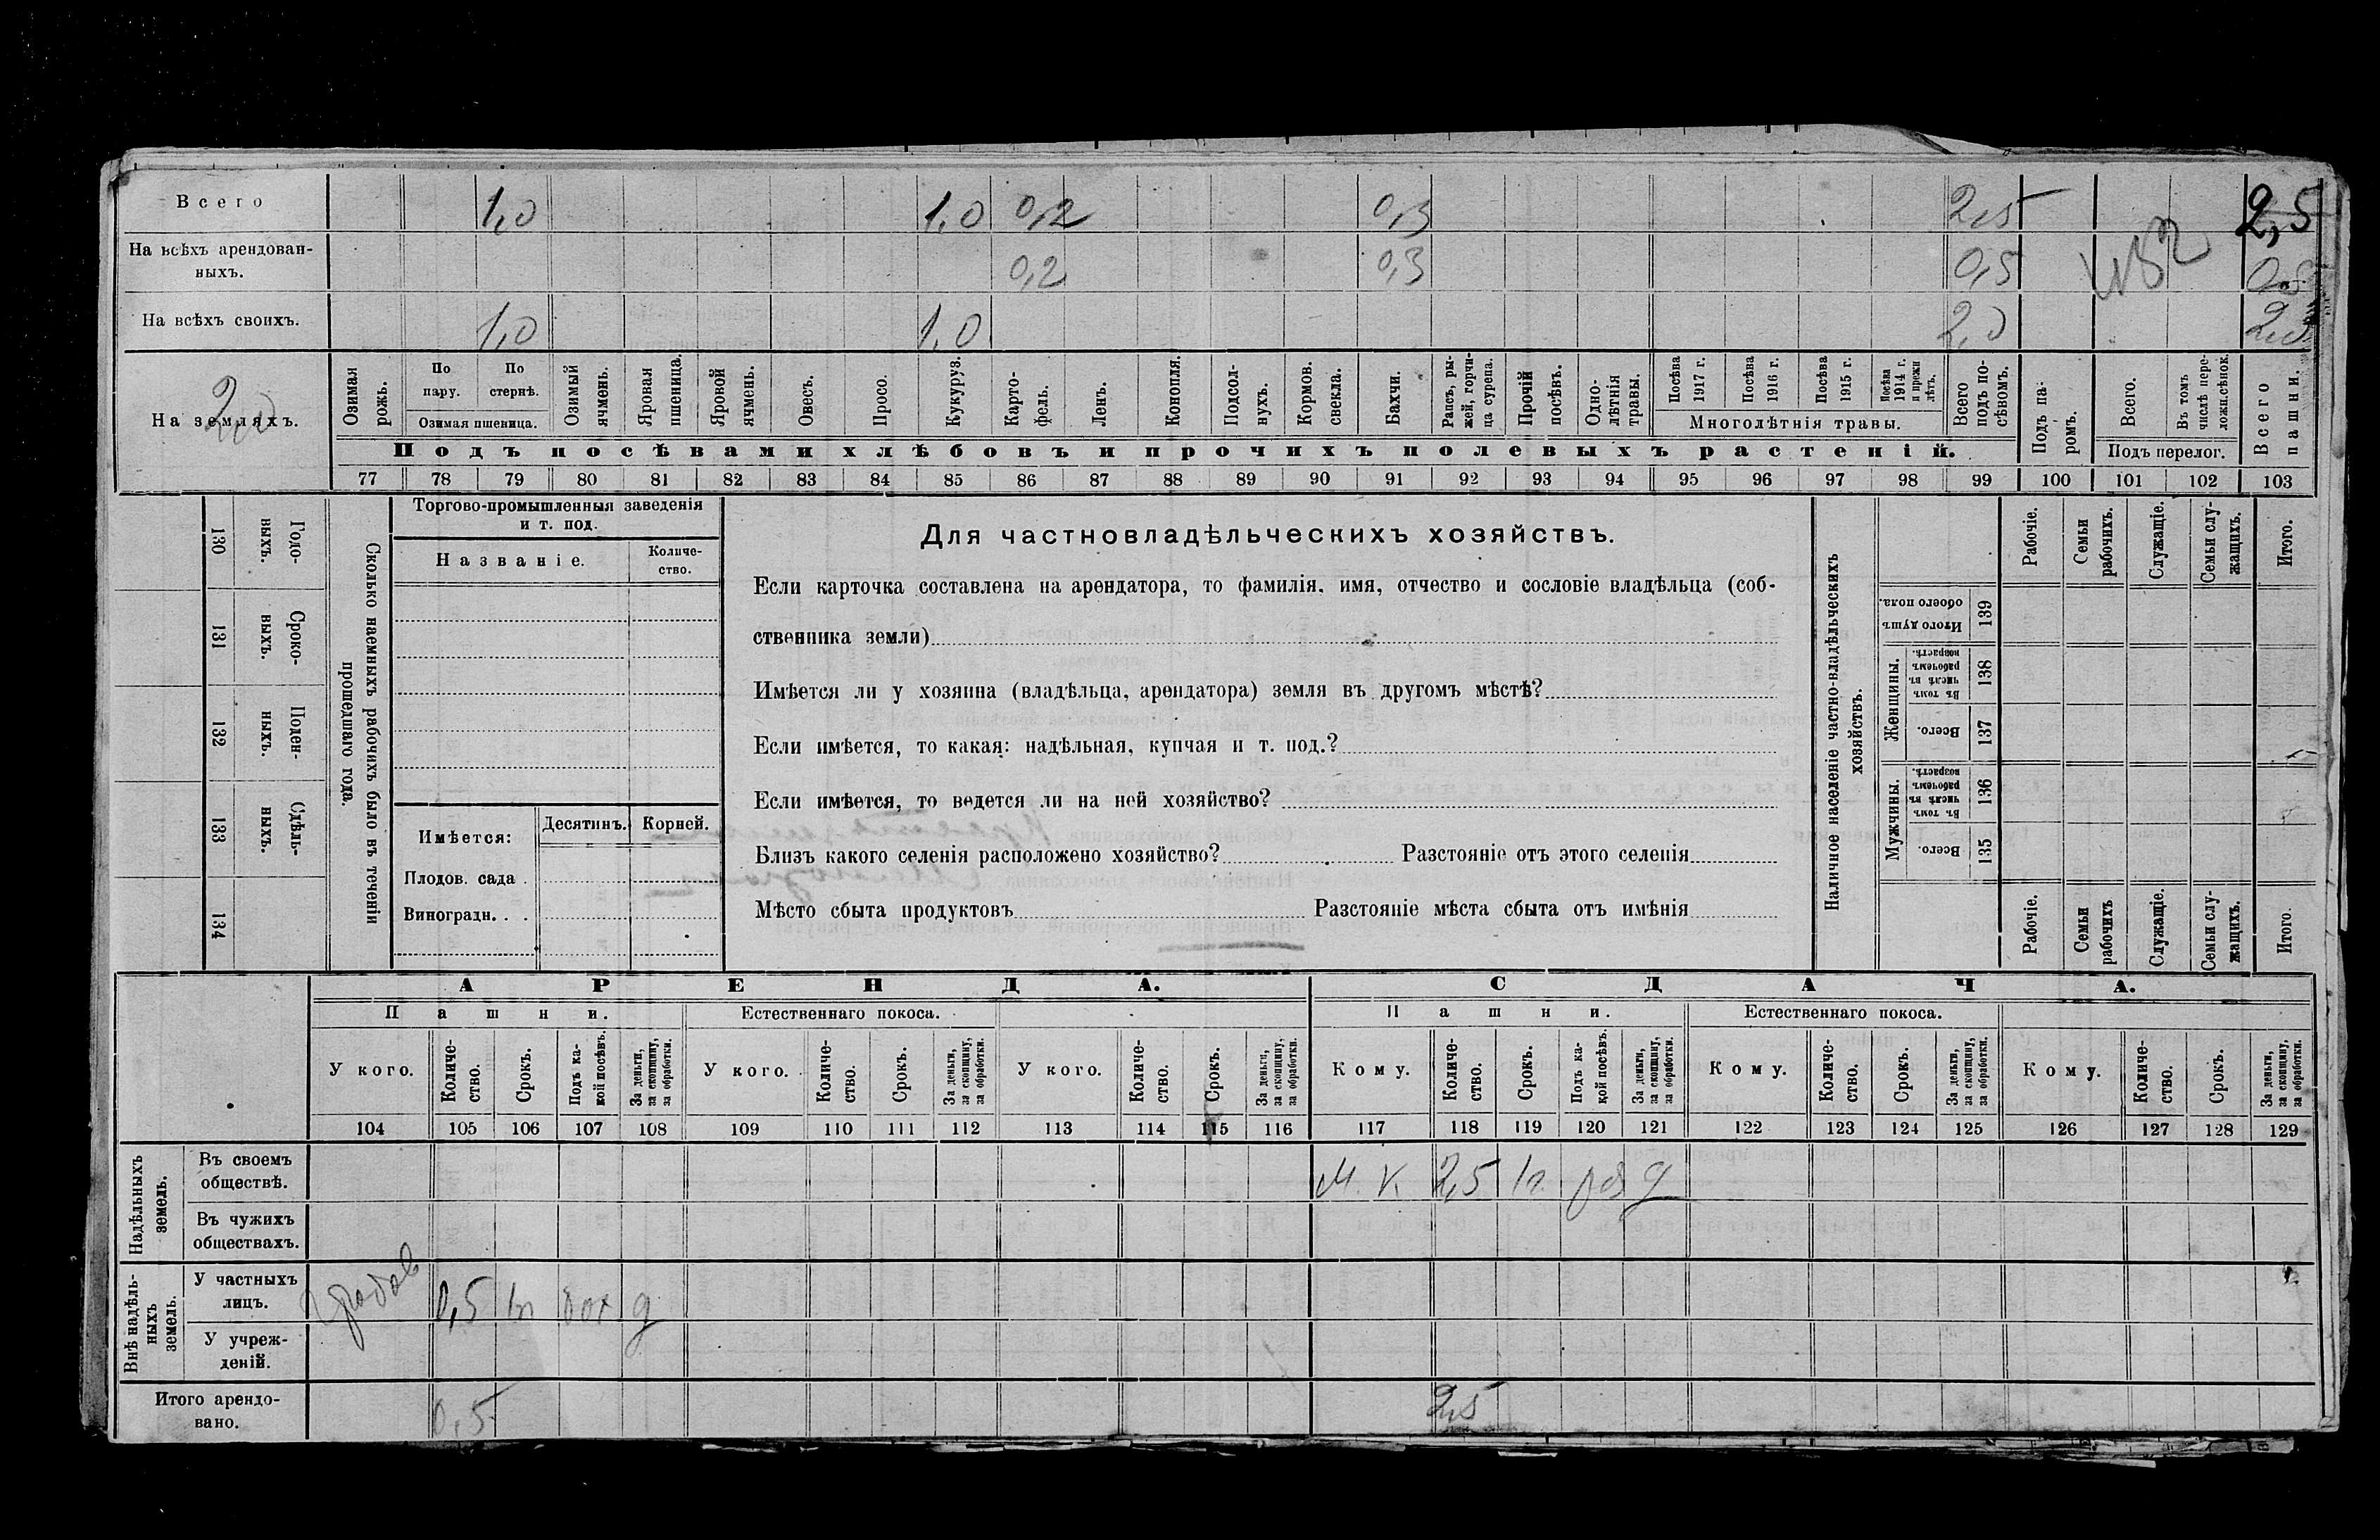 Всего 1,0 1,0 0,2 0,3 2,5 2,5
На всѣхъ арендован-
ныхъ. 0,2 0,3 0,5
На всѣхъ своихъ. 1,0 1,0 2,0 2,0
На земляхъ. 2,0
Озимая рожь.
По пару.
По стернѣ.
Озимая пшеница.
Озимый ячмень.
Яровая пшеница.
Яровой ячмень.
Овесъ.
Просо.
Кукуруз.
Карто-
фель.
Ленъ.
Конопля.
Подсол-
нухъ.
Кормов.
свекла.
Бахчи.
Рапсъ, ры-
жей, горчи-
ца сурепа.
Прочій
посѣвъ.
Одно-
лѣтнія
травы.
Посѣва
1917 г.
Посѣва
1916 г.
Посѣва
1915 г.
Посѣва
1914 г.
и прежн
лѣтъ.
Многолѣтнія травы.
Всего
подъ по-
сѣвомъ.
Подъ па-
ромъ.
Всего.
Въ томъ
числѣ пере-
ложн.сѣнок.
Подъ перелог.
Всего
пашни.
Подъ посѣвами хлѣбовъ и прочихъ полевыхъ растеній.
77 78 79 80 81 82 83 84 85 86 87 88 89 90 91 92 93 94 95 96 97 98 99 100 101 102 103
Годо-
выхъ.
130
Сроко-
выхъ.
131
Поден-
ныхъ.
132
Сдѣль-
ныхъ.
133
134
Сколько наемныхъ рабочихъ было въ теченіи
прошедшаго года.
Торгово-промышленныя заведенія
и т. под.
Названіе.
Количе-
ство.
Имѣется:
Десятинъ.
Корней.
Плодов. сада .
Виноградн. . .
Для частновладѣльческихъ хозяйствъ.
Если карточка составлена на арендатора, то фамилія, имя, отчество и сословіе владѣльца (соб-
ственника земли)
Имѣется ли у хозяина (владѣльца, арендатора) земля въ другомъ мѣстѣ?
Если имѣется, то какая: надѣльная, купчая и т. под.?
Если имѣется, то ведется ли на ней хозяйство?
Близъ какого селенія расположено хозяйство? Разстояніе отъ этого селенія
Мѣсто сбыта продуктовъ Разстояніе мѣста сбыта отъ имѣнія
Наличное населеніе частно-владѣльческихъ
хозяйствъ.
Рабочіе.
Семьи
рабочихъ.
Служащіе.
Семьи слу-
жащихъ.
Итого.
Итого душъ
обоего пола.
139
Женщины.
Въ томъ
числѣ въ
рабочемъ
возрастѣ.
138
Всего.
137
Мужчины.
Въ томъ
числѣ въ
рабочемъ
возрастѣ.
136
Всего.
135
Рабочіе.
Семьи
рабочихъ
Служащіе.
Семьи слу-
жащихъ.
Итого.
АРЕНДА. СДАЧА.
Пашни. Естественнаго покоса. Пашни. Естественнаго покоса.
У кого.
Количе-
ство.
Срокъ.
Подъ ка-
кой посѣвъ.
За деньги,
за скопщину,
за обработки.
У кого.
Количе-
ство.
Срокъ.
За деньги,
за скопщину,
за обработки.
У кого.
Количе-
ство.
Срокъ.
За деньги,
за скопщину,
за обработки.
Кому.
Количе-
ство.
Срокъ.
Подъ ка-
кой посѣвъ.
За деньги,
за скопщину,
за обработки.
Кому.
Количе-
ство.
Срокъ.
За деньги,
за скопщину,
за обработки.
Кому.
Количе-
ство.
Срокъ.
За деньги,
за скопщину,
за обработки.
104 105 106 107 108 109 110 111 112 113 114 115 116 117 118 119 120 121 122 123 124 125 126 127 128 129
Надѣльныхъ
земель.
Въ своемъ
обществѣ. М. К. 2,5 1г. д
Въ чужихъ
обществахъ.
Внѣ надѣль-
ныхъ
земель.
У частныхъ
лицъ. 0,5 1г бах д
У учреж-
деній.
Итого арендо-
вано. 0,5 2,5